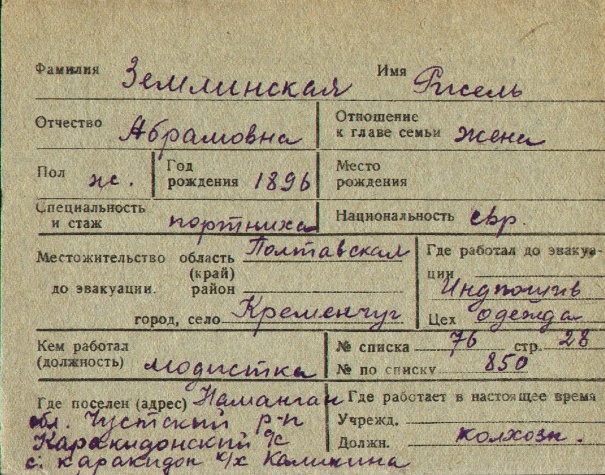 Фамилия Землинская Имя Гисель
Отчество Абрамовна Отношение к главе семьи жена
Пол ж. Год рождения 1896 Место рождения
Специальность и стаж портниха Национальность евр.
Местожительство до эвакуации. область (край) Полтавская
район
город, село Кременчуг
Где работал до эвакуации Индпошив
Цех одежда
Кем работал (должность) модистка
№ списка 76 стр. 28
№ по списку 850
Где поселен (адрес) Наманган
обл. Чустский р-н
Каракидонский с/с
с. Каракидон к/х Калинина
Где работает в настоящее время
Учрежд.
Должн. колхозн.